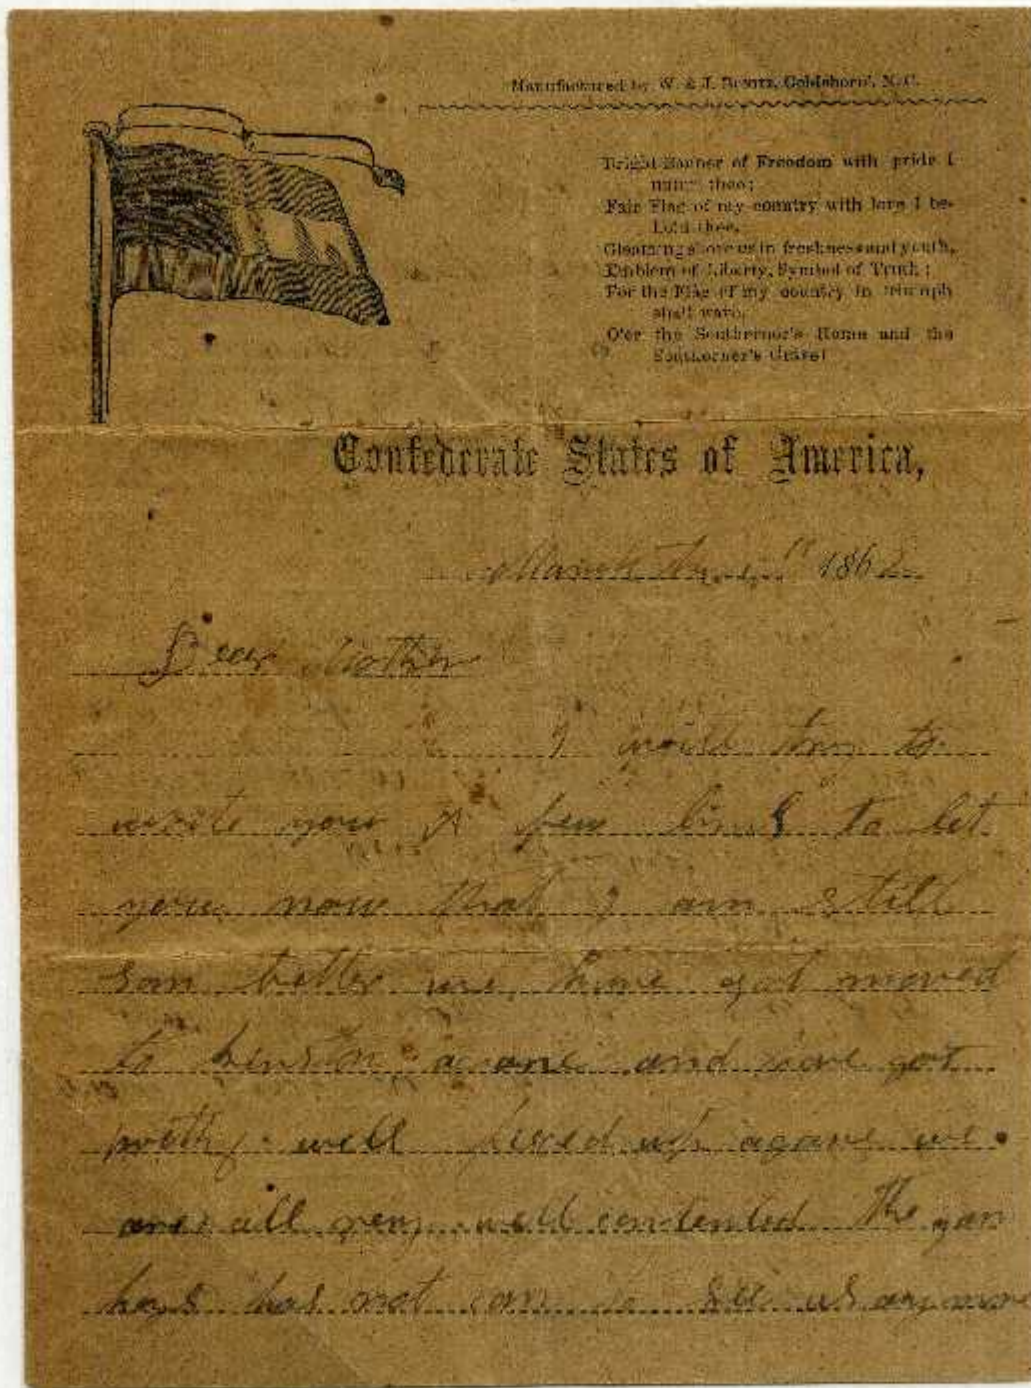 Manufactured by W. & J. Bonitz, Goldsboro', N. C.
Bright Banner of Freedom with pride I
thee;
Fair Flag of my country with love I be-
hold thee,
Gleaming above us in freshness and youth,
Emblem of Liberty, Symbol of Truth;
For the Flag of my country in triumph
shall wave,
O'er the Southerner's Home and the
Southerner's Grave!
Confederate States of America,
March the 1862
Dear Mother
I to
write you a few lines to let
you now that I am still
som better we have got moved
to and have got
well fixed up agane we
are all very well contented The yan
keys has not com to see us any more